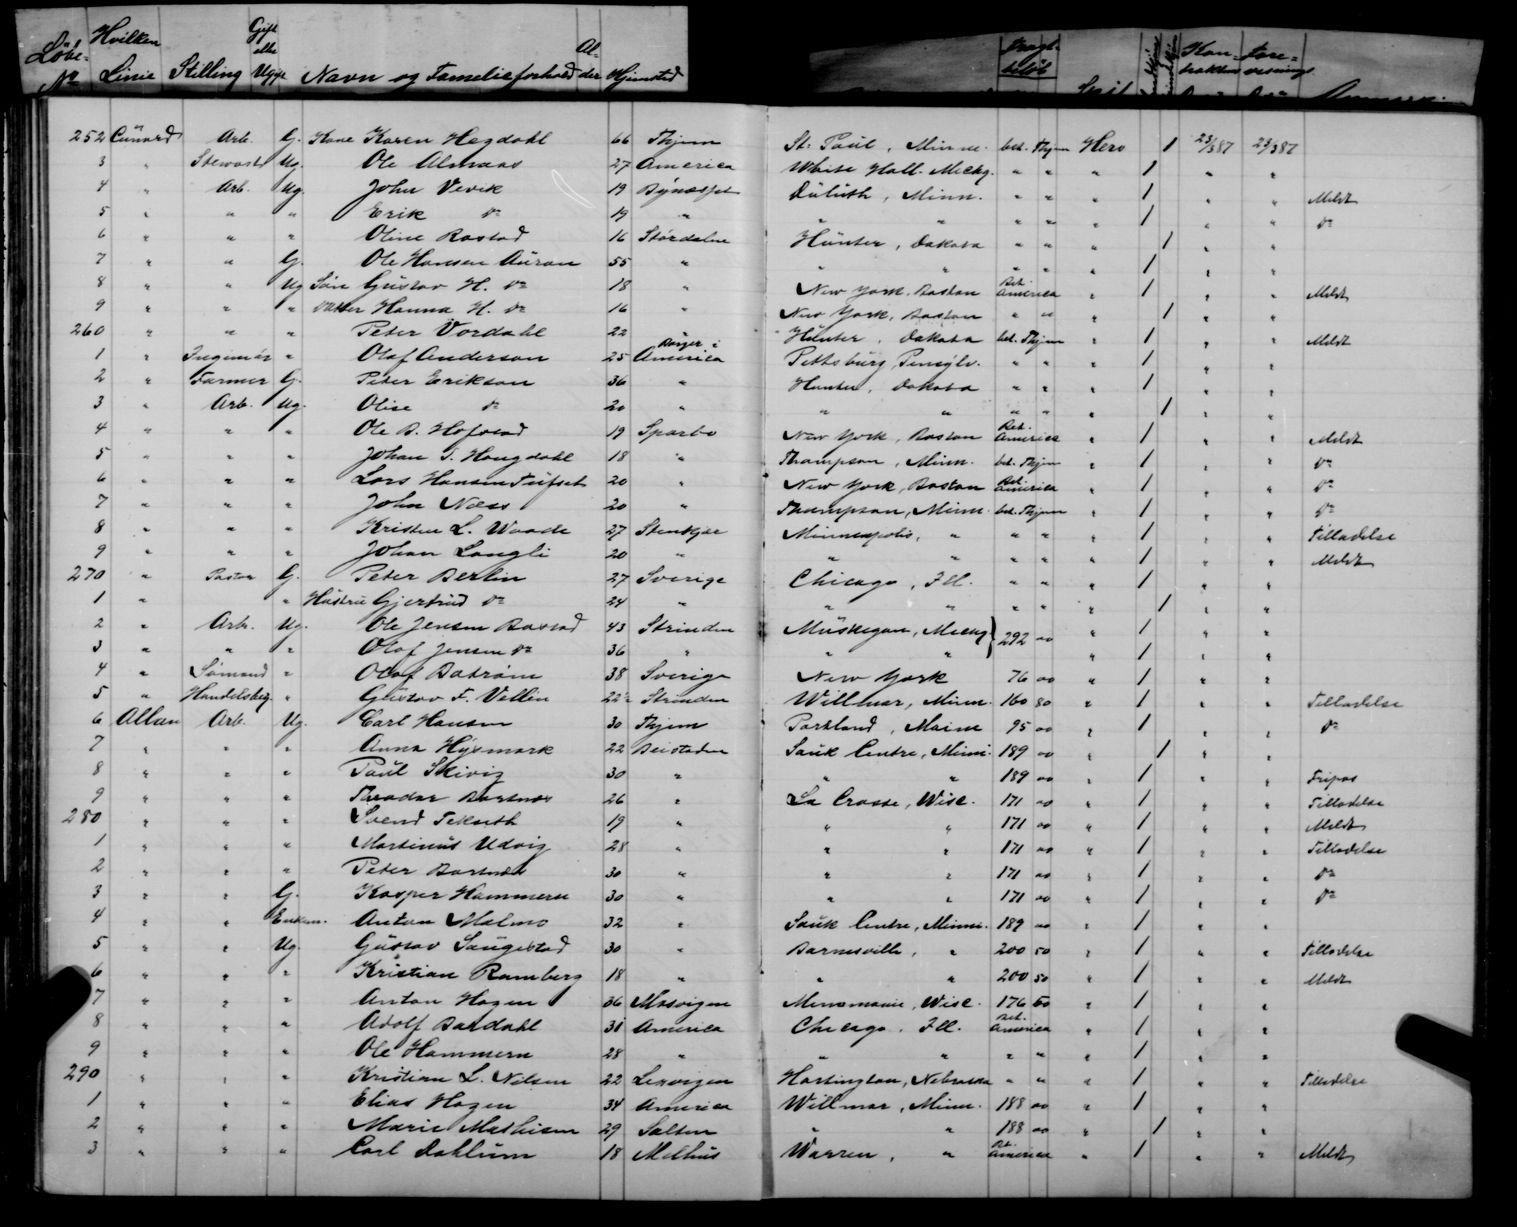 Løbe- No Hvilken Linie Stilling Gift eller Ugift Navn og Familieforhold Al- der Hjemsted Snit
252 Cunard Arb. G. Kone Karen Hegdahl 66 Thjem St. Paul, Minne. bet. Thjem Hero 1 23/3 87 23/3 87
3 " Steward Ug. Ole Almaas 27 America White Hall. Michg. " " " 1 " "
4 " Arb. Ug. John Vevik 19 Bynæsset Duluth, Minn. " " " 1 " " Meldt
5 " " " Erik do 19 " " " " " " 1 " " do
6 " " " Oline Rostad 16 Stördalen Hunter, Dakota " " " 1 " "
7 " " G. Ole Hansen Auran 55 " " " " " " 1 " "
8 " " Ug Søn Gustav H. do 18 " New York. Boston Bet. America " 1 " " Meldt
9 " " " Datter Hanna H. do 16 " New York, Boston " " " 1 " "
260 " " " Peter Vordahl 22 " Hunter, Dakota bet. Thjem " 1 " " Meldt
1 " Ingeniör " Olaf Anderson 25 Borger i America Pettsburg Pensylv. " " " 1 " "
2 " Farmer G. Peter Erikson 36 " Hunter, Dakota " " " 1 " "
3 " Arb. Ug. Olise do 20 " " " " " " 1 " "
4 " " " Ole B. Hofstad 19 Sparbo New York, Boston Bet. America " 1 " " Meldt
5 " " " Johan T. Haugdahl 18 " Thompson, Minn. bet. Thjem " 1 " " do
6 " " " Lars Hansen Tufset 20 " New York, Boston Bet. America " 1 " " do
7 " " " John Næss 20 " Thompson, Minn. bet. Thjem " 1 " " do
8 " " " Kristen L. Waade 27 Stenkjær Minneapolis, " " " " 1 " " Tilladelse
9 " " " Johan Langli 20 " " " " " " 1 " " Meldt
270 " Pastor G. Peter Berlin 27 Sverige Chicago, Ill. " " " 1 " "
1 " " Hustru Gjertrud do 24 " " " " " " 1 " "
2 " Arb. Ug. Ole Jensen Bastad 43 Strinden Muskegan, Michg } 292 00 " 1 " "
3 " " " Olof Jensen do 36 " " " " 1 " "
4 " Sømand " Olof Boström 38 Sverige New York 76 00 " 1 " "
5 " Handelsbetj. " Gustav F. Vellin 22 Strinden Willmar, Minn. 160 80 " 1 " " Tilladelse
6 Allan Arb. Ug. Carl Hansen 30 Thjem Portland, Maine 95 00 " 1 " " do
7 " " " Anna Hysmark 22 Beistaden Sauk Centre, Minn. 189 00 " 1 " "
8 " " " Paul Skivig 30 " " " 189 00 " 1 " " Fripas
9 " " " Theodor Bartnes 26 " La Crosse, Wisc. 171 00 " 1 " " Tilladelse
280 " " " Svend Tekseth 19 " " " 171 00 " 1 " " Meldt
1 " " " Martinus Udvig 28 " " " 171 00 " 1 " " Tilladelse
2 " " " Peter Bartnes 30 " " " 171 00 " 1 " " do
3 " " G. Kasper Hammern 30 " " " 171 00 " 1 " " do
4 " " Enkem. Anton Malmo 32 " Sauk Centre, Minn. 189 00 " 1 " "
5 " " Ug. Gustav Saugestad 30 " Barnesville, " 200 50 " 1 " " Tilladelse
6 " " " Kristian Ramberg 18 " " " 200 50 " 1 " " Meldt
7 " " " Anton Hagen 36 Mosvigen Menomonie, Wisc. 176 60 " 1 " "
8 " " " Adolf Bardahl 31 America Chicago, Ill. Bet. America " 1 " "
9 " " " Ole Hammern 28 " " " " " " 1 " "
290 " " " Kristian L. Nilsen 22 Lexvigen Hartington, Nebraska " " " 1 " " Tilladelse
1 " " " Elias Hagen 34 America Willmar, Minn. 188 00 " 1 " "
2 " " " Marie Mathisen 29 Salten " " 188 00 " 1 " "
3 " " " Carl Dahlum 18 Melhus Warren, " Bet. America " 1 " " Meldt